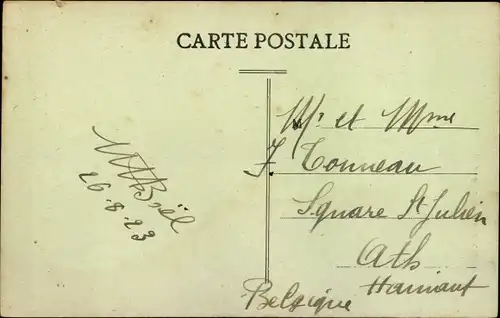 CARTE POSTALE
Mr et Mme
F. Tonneau
Square St Julien
Ath
Hainaut
Belgique
26.8.23